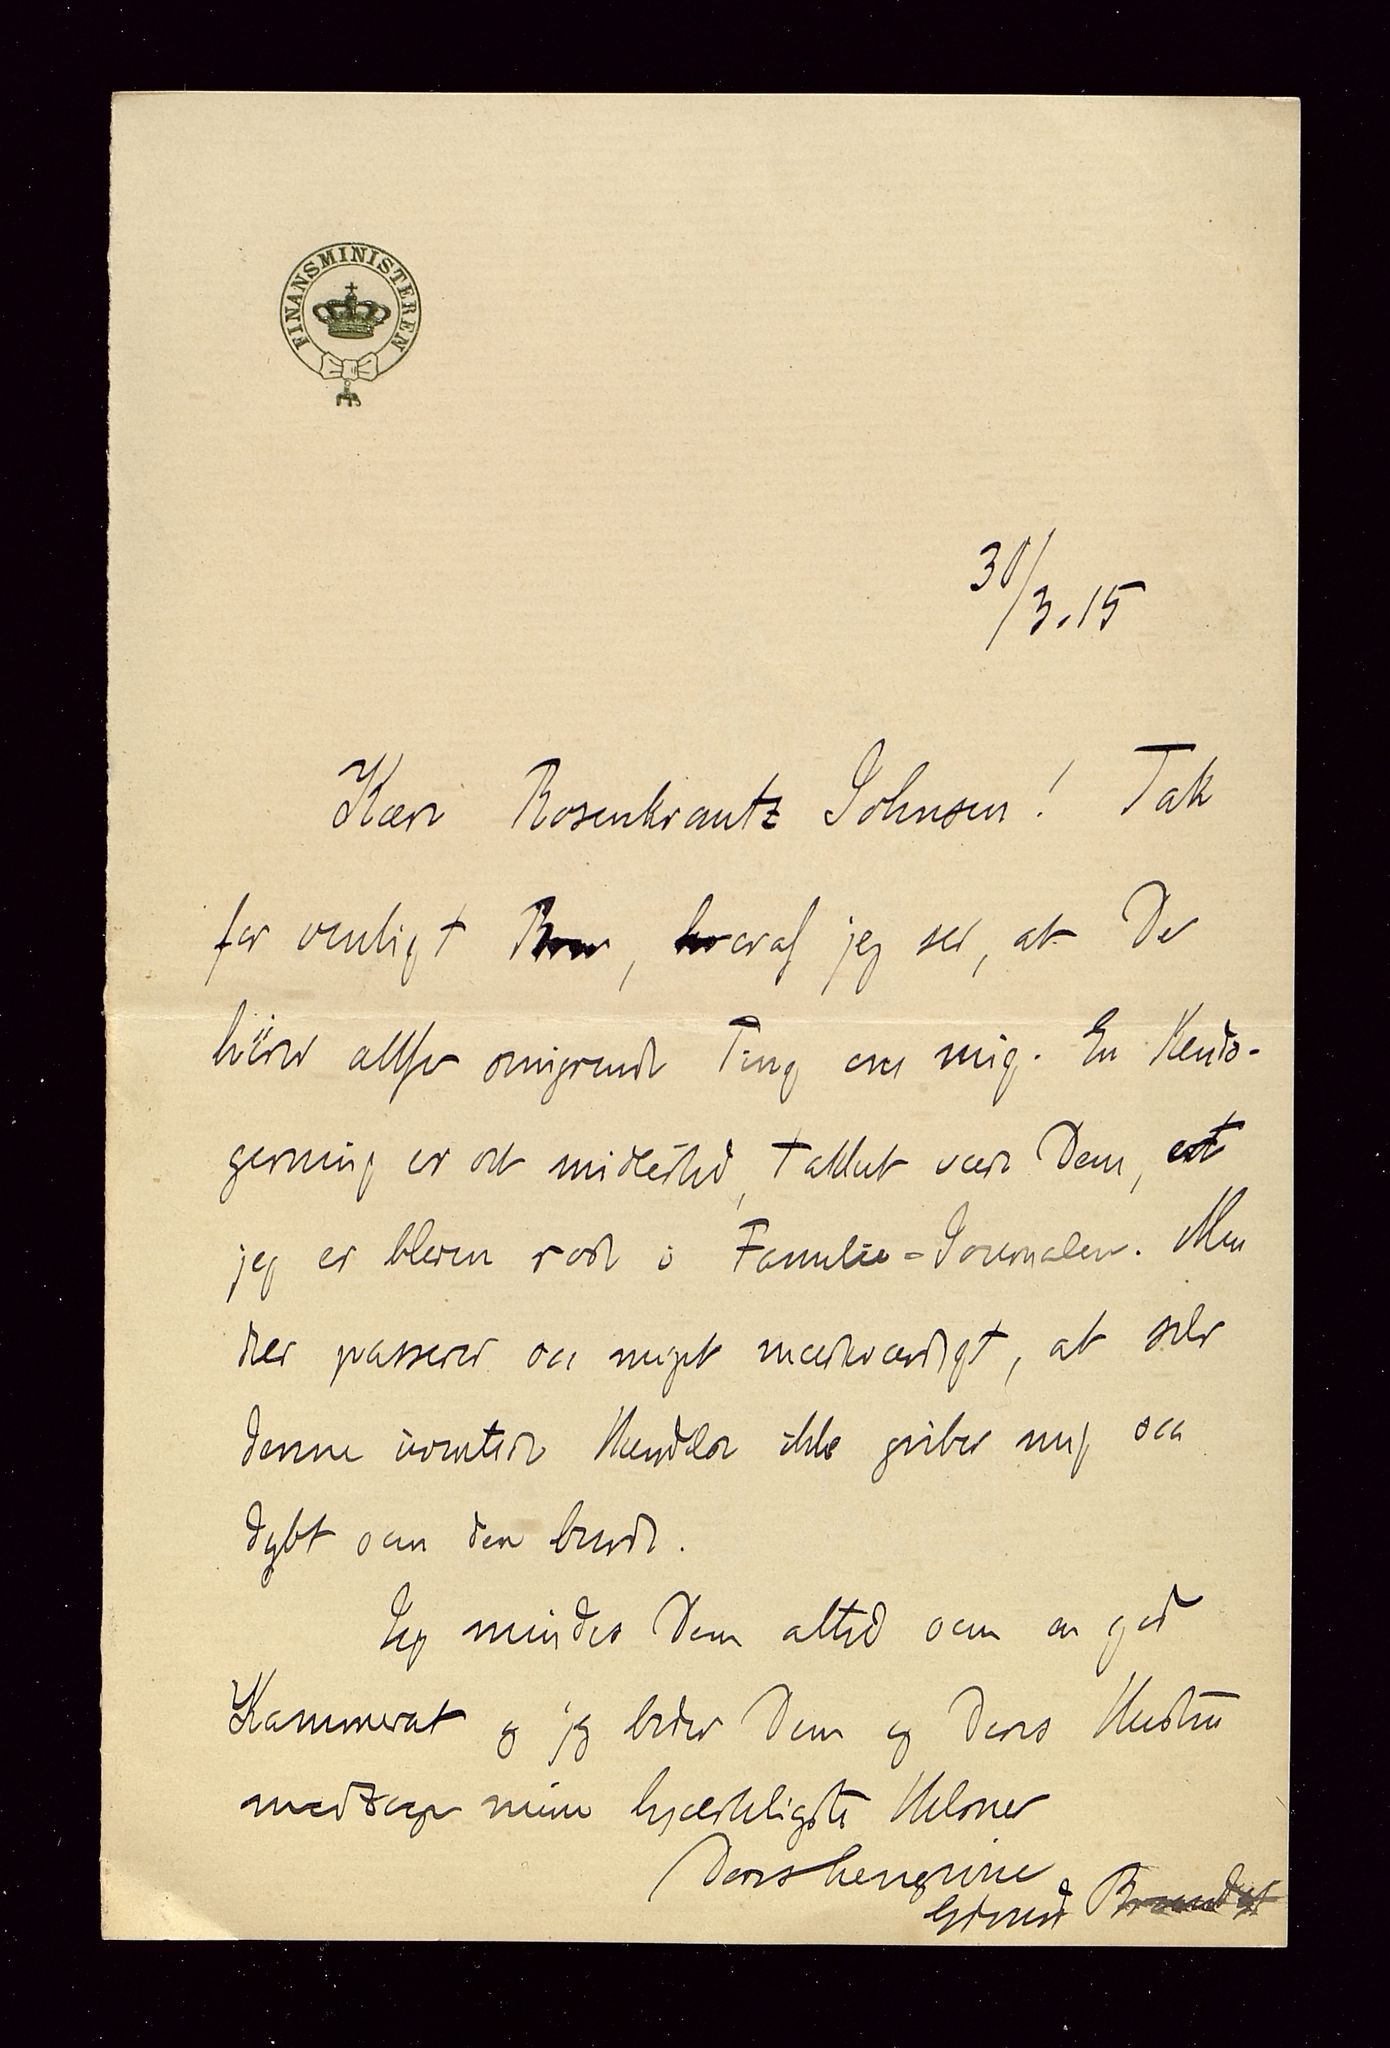 FINANSMINISTEREN
30/3.15
Kære Rosenkrantz Johnsen! Tak
for venligt Brev, hvoraf jeg ser, at De
hører allehr smigrende Ting om mig. En Kends-
gerning er det imidlertid, takket være Dem, at
jeg er bleven rost i Familie=Journalen. Men
der passerer saa meget mærkværdigt, at selv
denne uventede Hændelse ikke griber mig saa
dybt som den burde.
Jeg mindes Dem altid som en god
Kammerat og jeg beder Dem og Deres Hustru
modtage mine hjerteligste Hilsner
Deres hengivne
Edvard Brandes